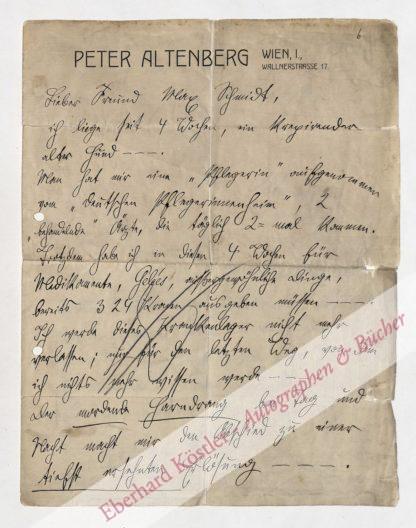 6
PETER ALTENBERG WIEN, I.,
WALLNERSTRASSE 17.
Lieber Freund Max Schmidt,
ich liege seit 4 Wochen, ein krepirender
alter Hund — — —.
Man hat mir eine „Pflegerin“ aufgenommen
vom „deutschen Pflegerinnenheim“, 2
„behandelnde“ Ärzte, die täglich 2= mal kommen.
Trotzdem habe ich in diesen 4 Wochen für
Medikamente, Dinge,
bereits 321 Kronen ausgeben müssen — — —.
Ich werde dieses Krankenlager nicht mehr
verlassen; nur für den letzten Weg, von dem
ich nichts mehr wissen werde — —
Der mordende Harndrang bei Tag und
Nacht macht mir den Abschied zu einer
tiefst ersehnten Erlösung — — — —.
Eberhard Köstler Autographen & Bücher